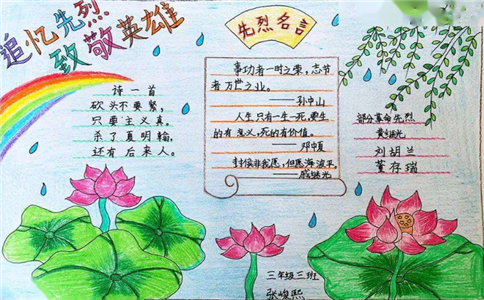 追忆先烈
致敬英雄
诗一首
砍头不要紧，
只要主义真。
杀了夏明翰，
还有后来人。
先烈名言
事功者一时之荣，志节
者万世之业。
——孙中山
人生只有一生一死，要生
的有意义，死的有价值。
——邓中夏
封侯非我愿，但愿海波平。
——戚继光
部分革命先烈
黄继光
刘胡兰
董存瑞
三年级三班
张峻熙